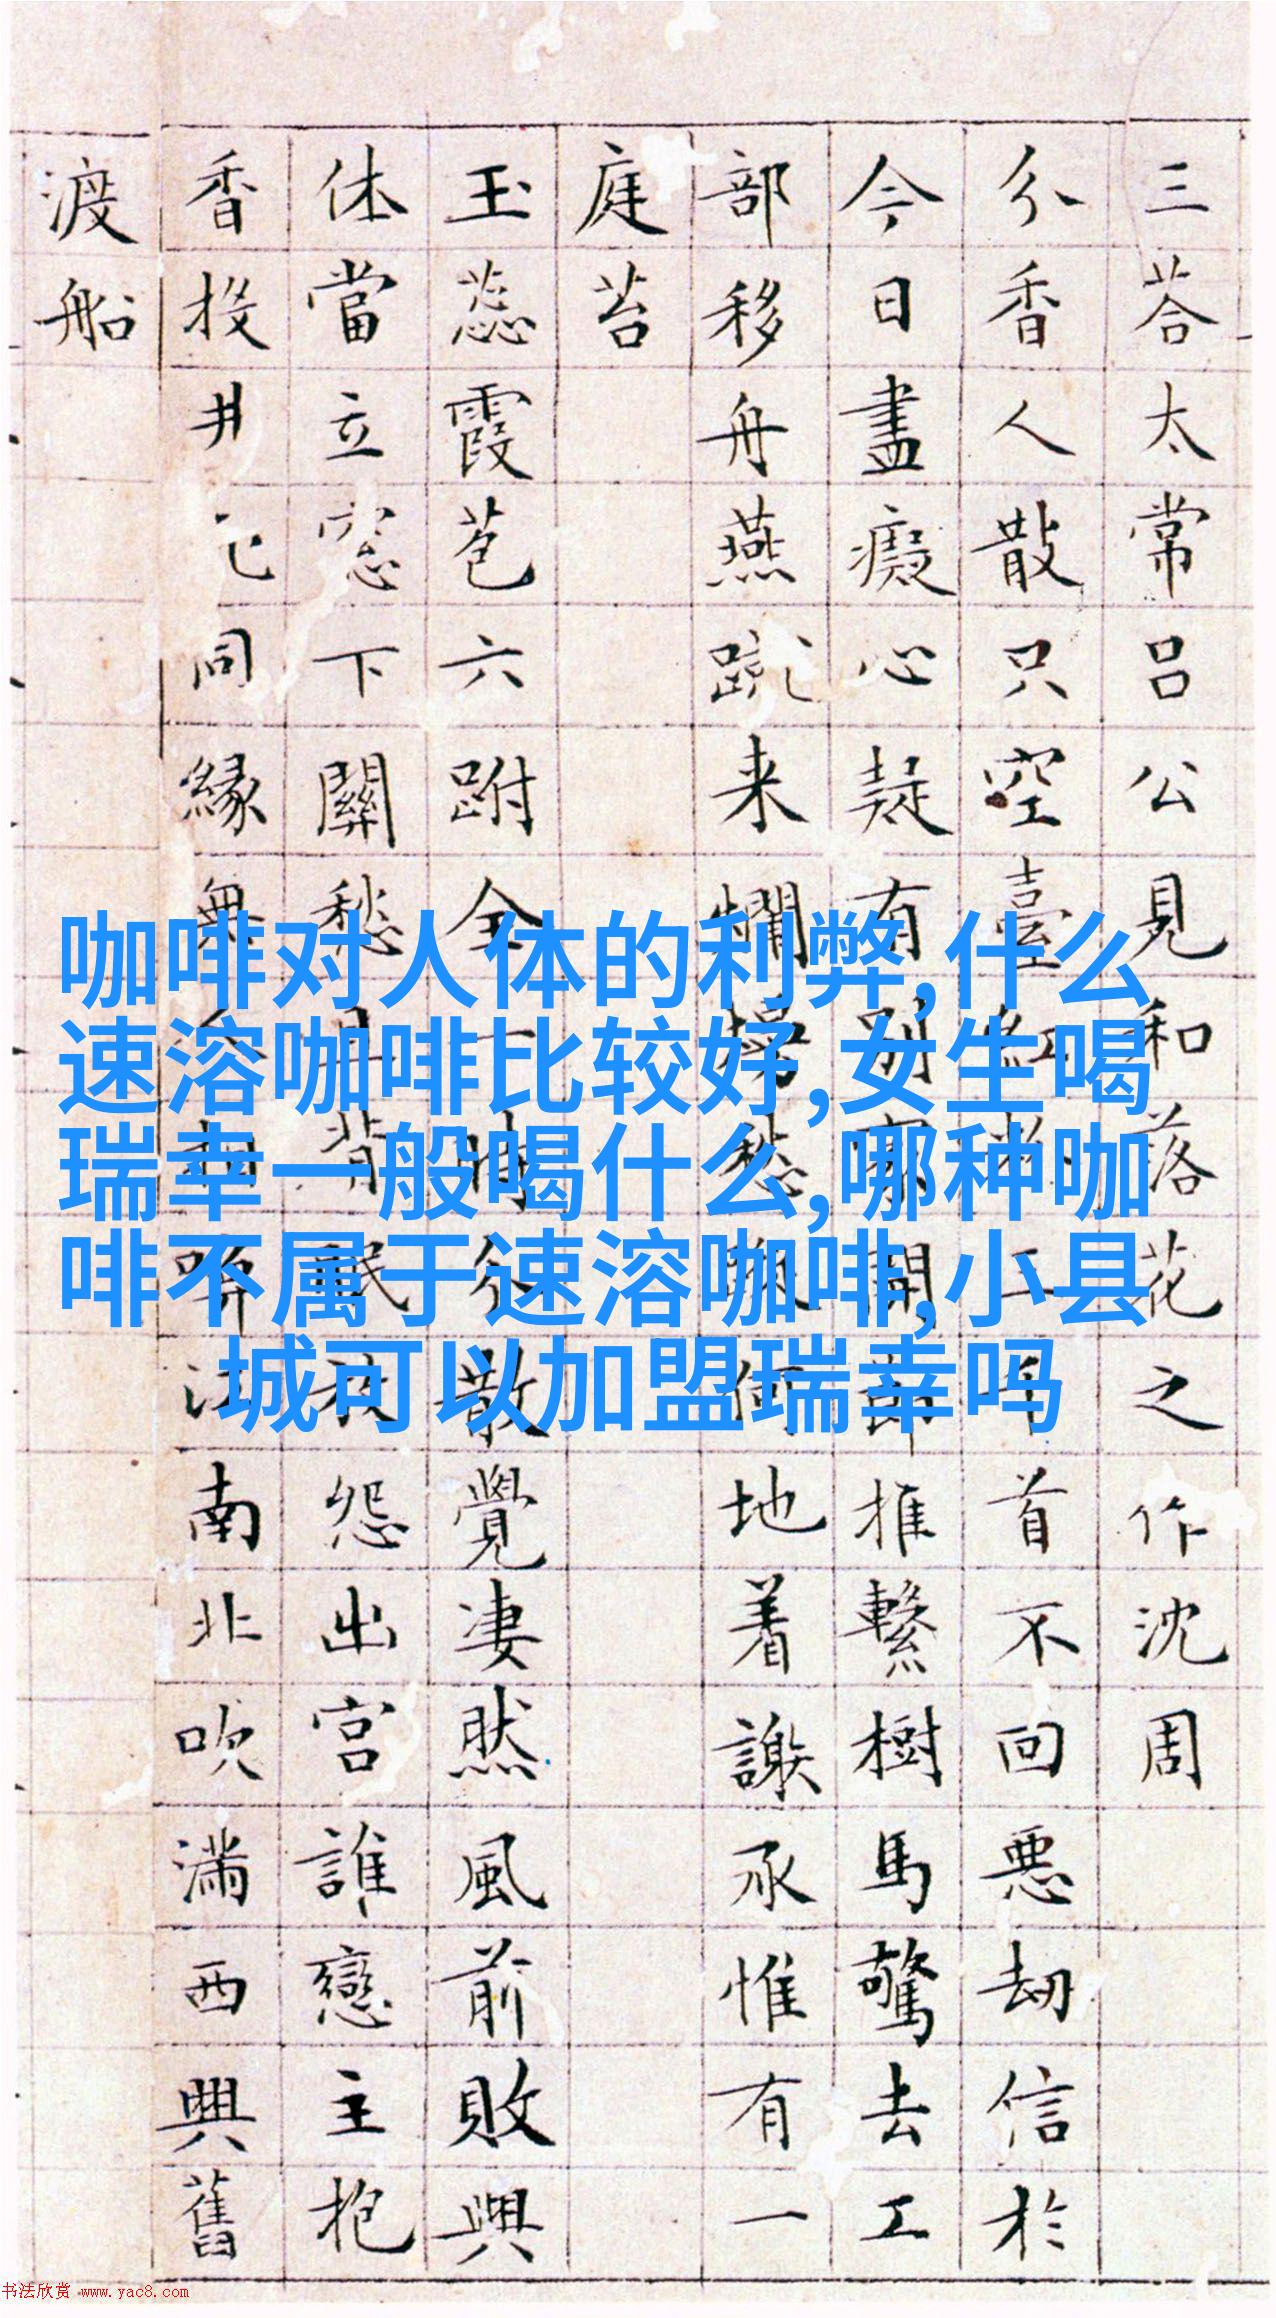 三荅太常吕公見和落花之作沈周
分香人散只空臺紅千首不回惡劫信於
今日盡癡心疑有別家開節推繫樹馬驚去工
部移舟燕蹴来爛熳愁何地着謝承惟有一
庭苔
玉蕊霞苞六跗全一時分散覺凄然風前敗興
休當立窓下關愁且背眠秋怨出宫誰戀主抱
香投井同緣無人相江南北吹滿西興舊
渡船
咖啡对人体的利弊,什么
速溶咖啡比较好,女生喝
瑞幸一般喝什么,哪种咖
啡不属于速溶咖啡,小县
城可以加盟瑞幸吗
书法欣赏 www.yac8.com